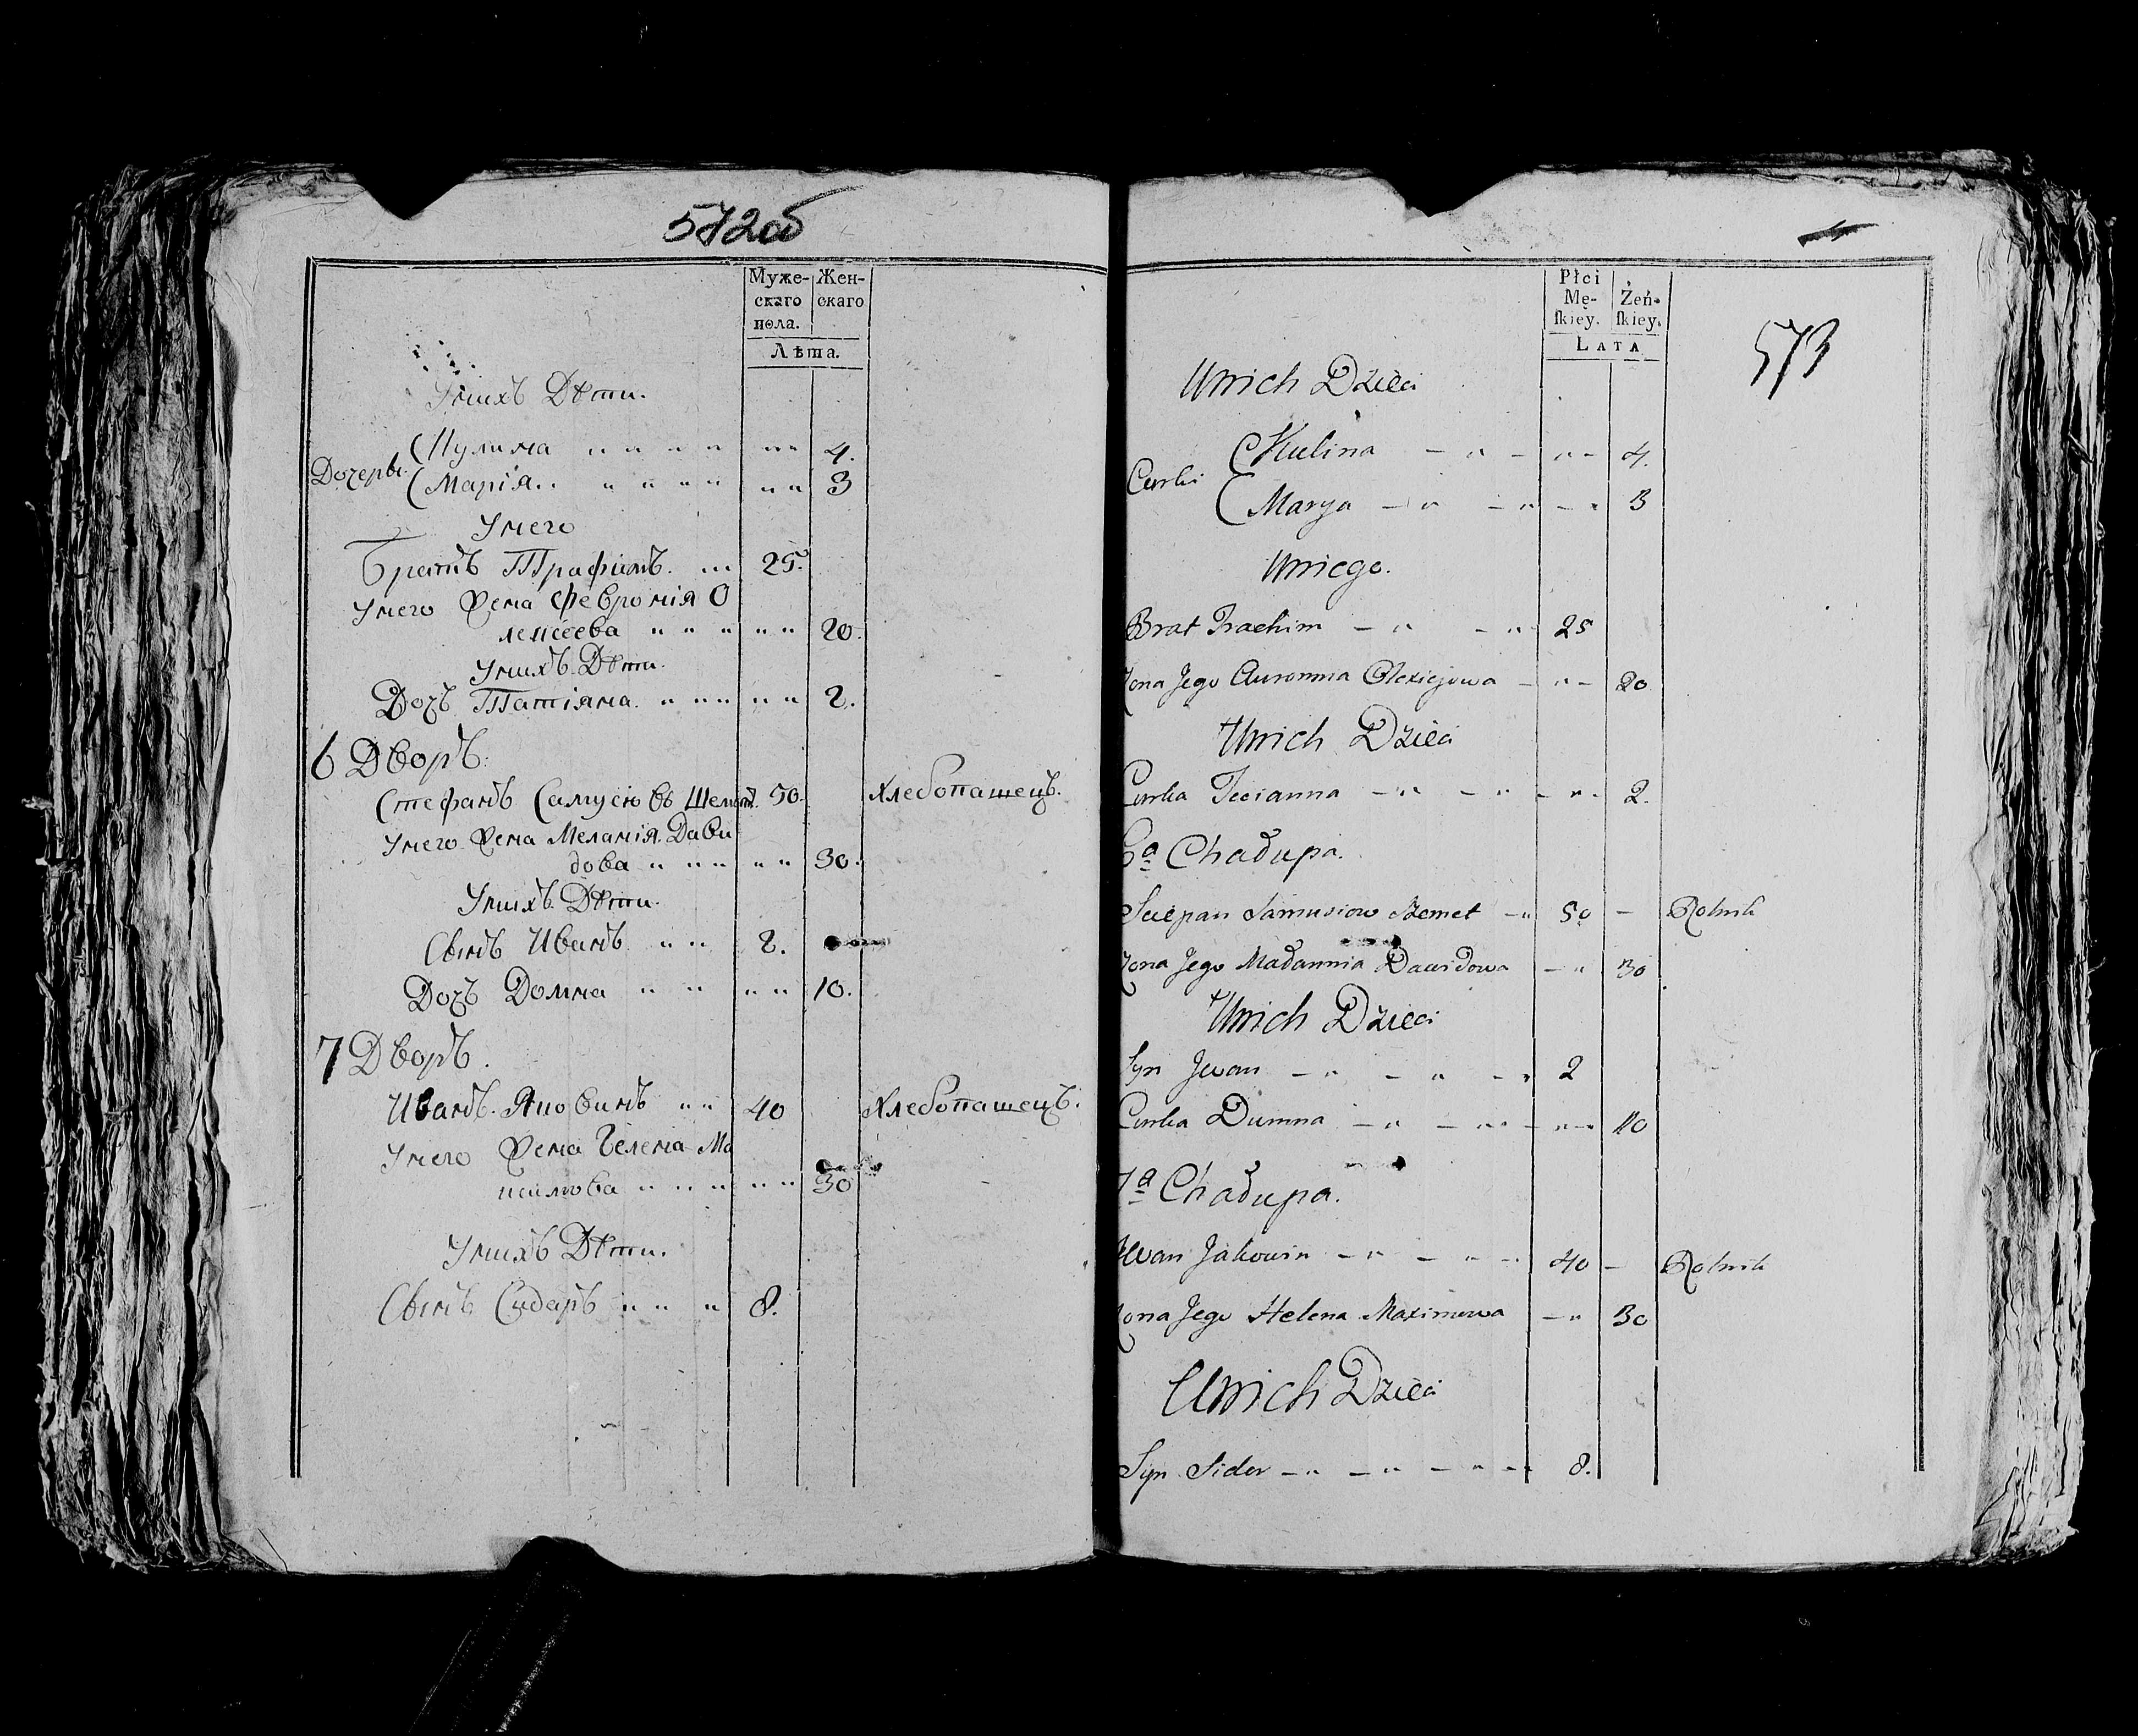 572об
Муже- Жен-
скаго скаго
пола.
Лѣта.
Унихъ Дѣти.
Дочерьи (Кулина " " " " " " 4.
(Марія " " " " " " 3
Унего
Братъ Трафимъ. " " 25.
Унего Жена Февронія О
лексеева " " " " " 20.
Унихъ Дѣти.
Дочъ Татіяна. " " " " " 2.
6 Дворъ.
Стефанъ Самусювъ Шеметъ. 50. Хлебопашецъ.
Унего Жена Меланія Дави
дова " " " " " 30.
Унихъ Дѣти.
Сынъ Иванъ. " " 2.
Дочъ Домна " " " " 10.
7 Дворъ.
Иванъ. Яковинъ " " 40 Хлебопашецъ.
Унего Жена Гелена Ма
ксимова " " " " " 30
Унихъ Дѣти.
Сынъ Сидаръ " " " 8.
Płci
Mę- Żeń-
skiey. skiey.
LATA
573
Unich Dzieci
Curki (Kulina – " – " – 4.
(Marya – " – " – " 3
Uniego.
Brat Trachim – " – " 25
Żona Jego Auronnia Olexiejowa – " – 20
Unich Dzieci
Curka Tecianna – " – " – " – 2.
6a Chałupa.
Sciepan Samusiow Szemet – " 50 – Rolnik
Żona Jego Małannia Dawidowa – " 30
Unich Dzieci
Syn Jwan – " – " – " 2
Curka Dumna – " – " – " – 10
7a Chałupa.
Jwan Jakowin – " – " – 40 – Rolnik
Żona Jego Helena Maximowa – " 30
Unich Dzieci
Syn Sidor – " – " – " – 8.